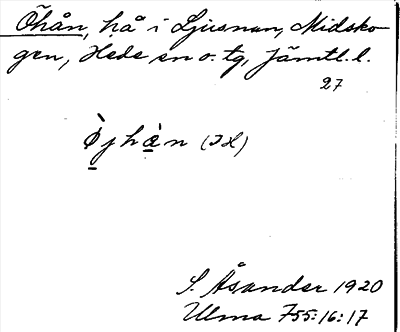 Öhån, hå i Ljusnan, Midsko-
gen, Hede sn o. tg, Jämtl. l.
27
ø̀jhæ̀n (JH)
S. Åsander 1920
Ulma 755:16:17